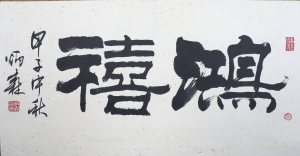 鴻禧
甲子中秋
炳森